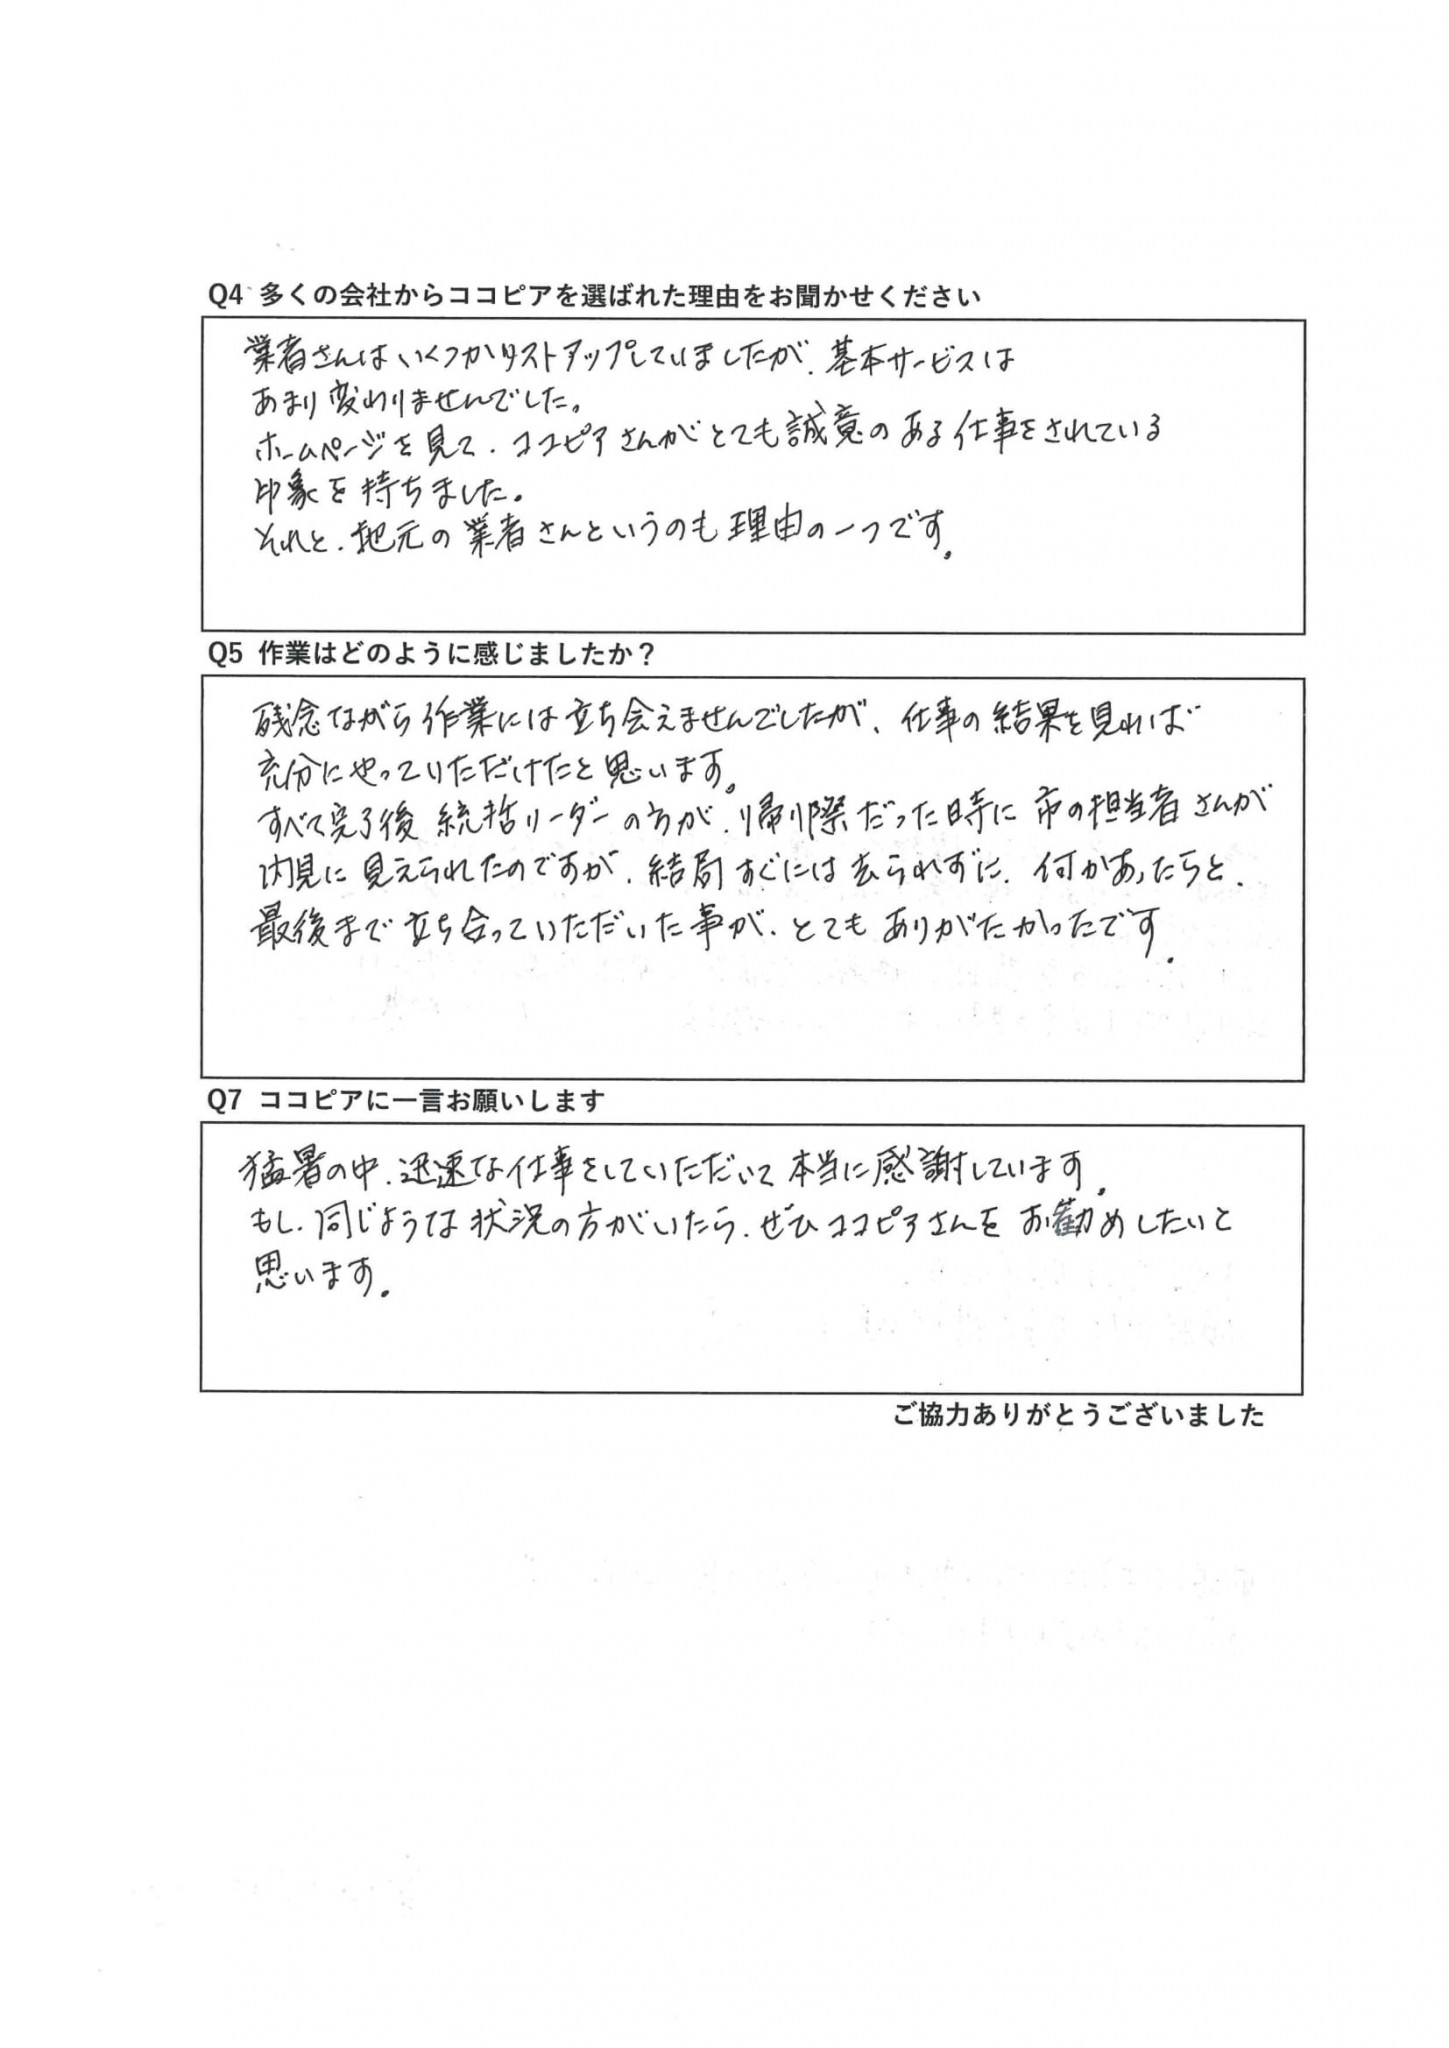 Q4 多くの会社からココピアを選ばれた理由をお聞かせください
業者さんはいくつかリストアップしていましたが、基本サービスは
あまり変わりませんでした。
ホームページを見て、ココピアさんがとても誠意のある仕事をされている
印象を持ちました。
それと、地元の業者さんというのも理由の一つです。
Q5 作業はどのように感じましたか？
残念ながら作業には立ち会えませんでしたが、仕事の結果を見れば
充分にやっていただけたと思います。
すべて完了後 統括リーダーの方が、帰り際だった時に 市の担当者さんが
内見に見えられたのですが、結局すぐには去られずに、何かあったらと、
最後まで立ち合っていただいた事が、とてもありがたかったです。
Q7 ココピアに一言お願いします
猛暑の中、迅速な仕事をしていただいて本当に感謝しています。
もし、同じような状況の方がいたら、ぜひココピアさんをお勧めしたいと
思います。
ご協力ありがとうございました